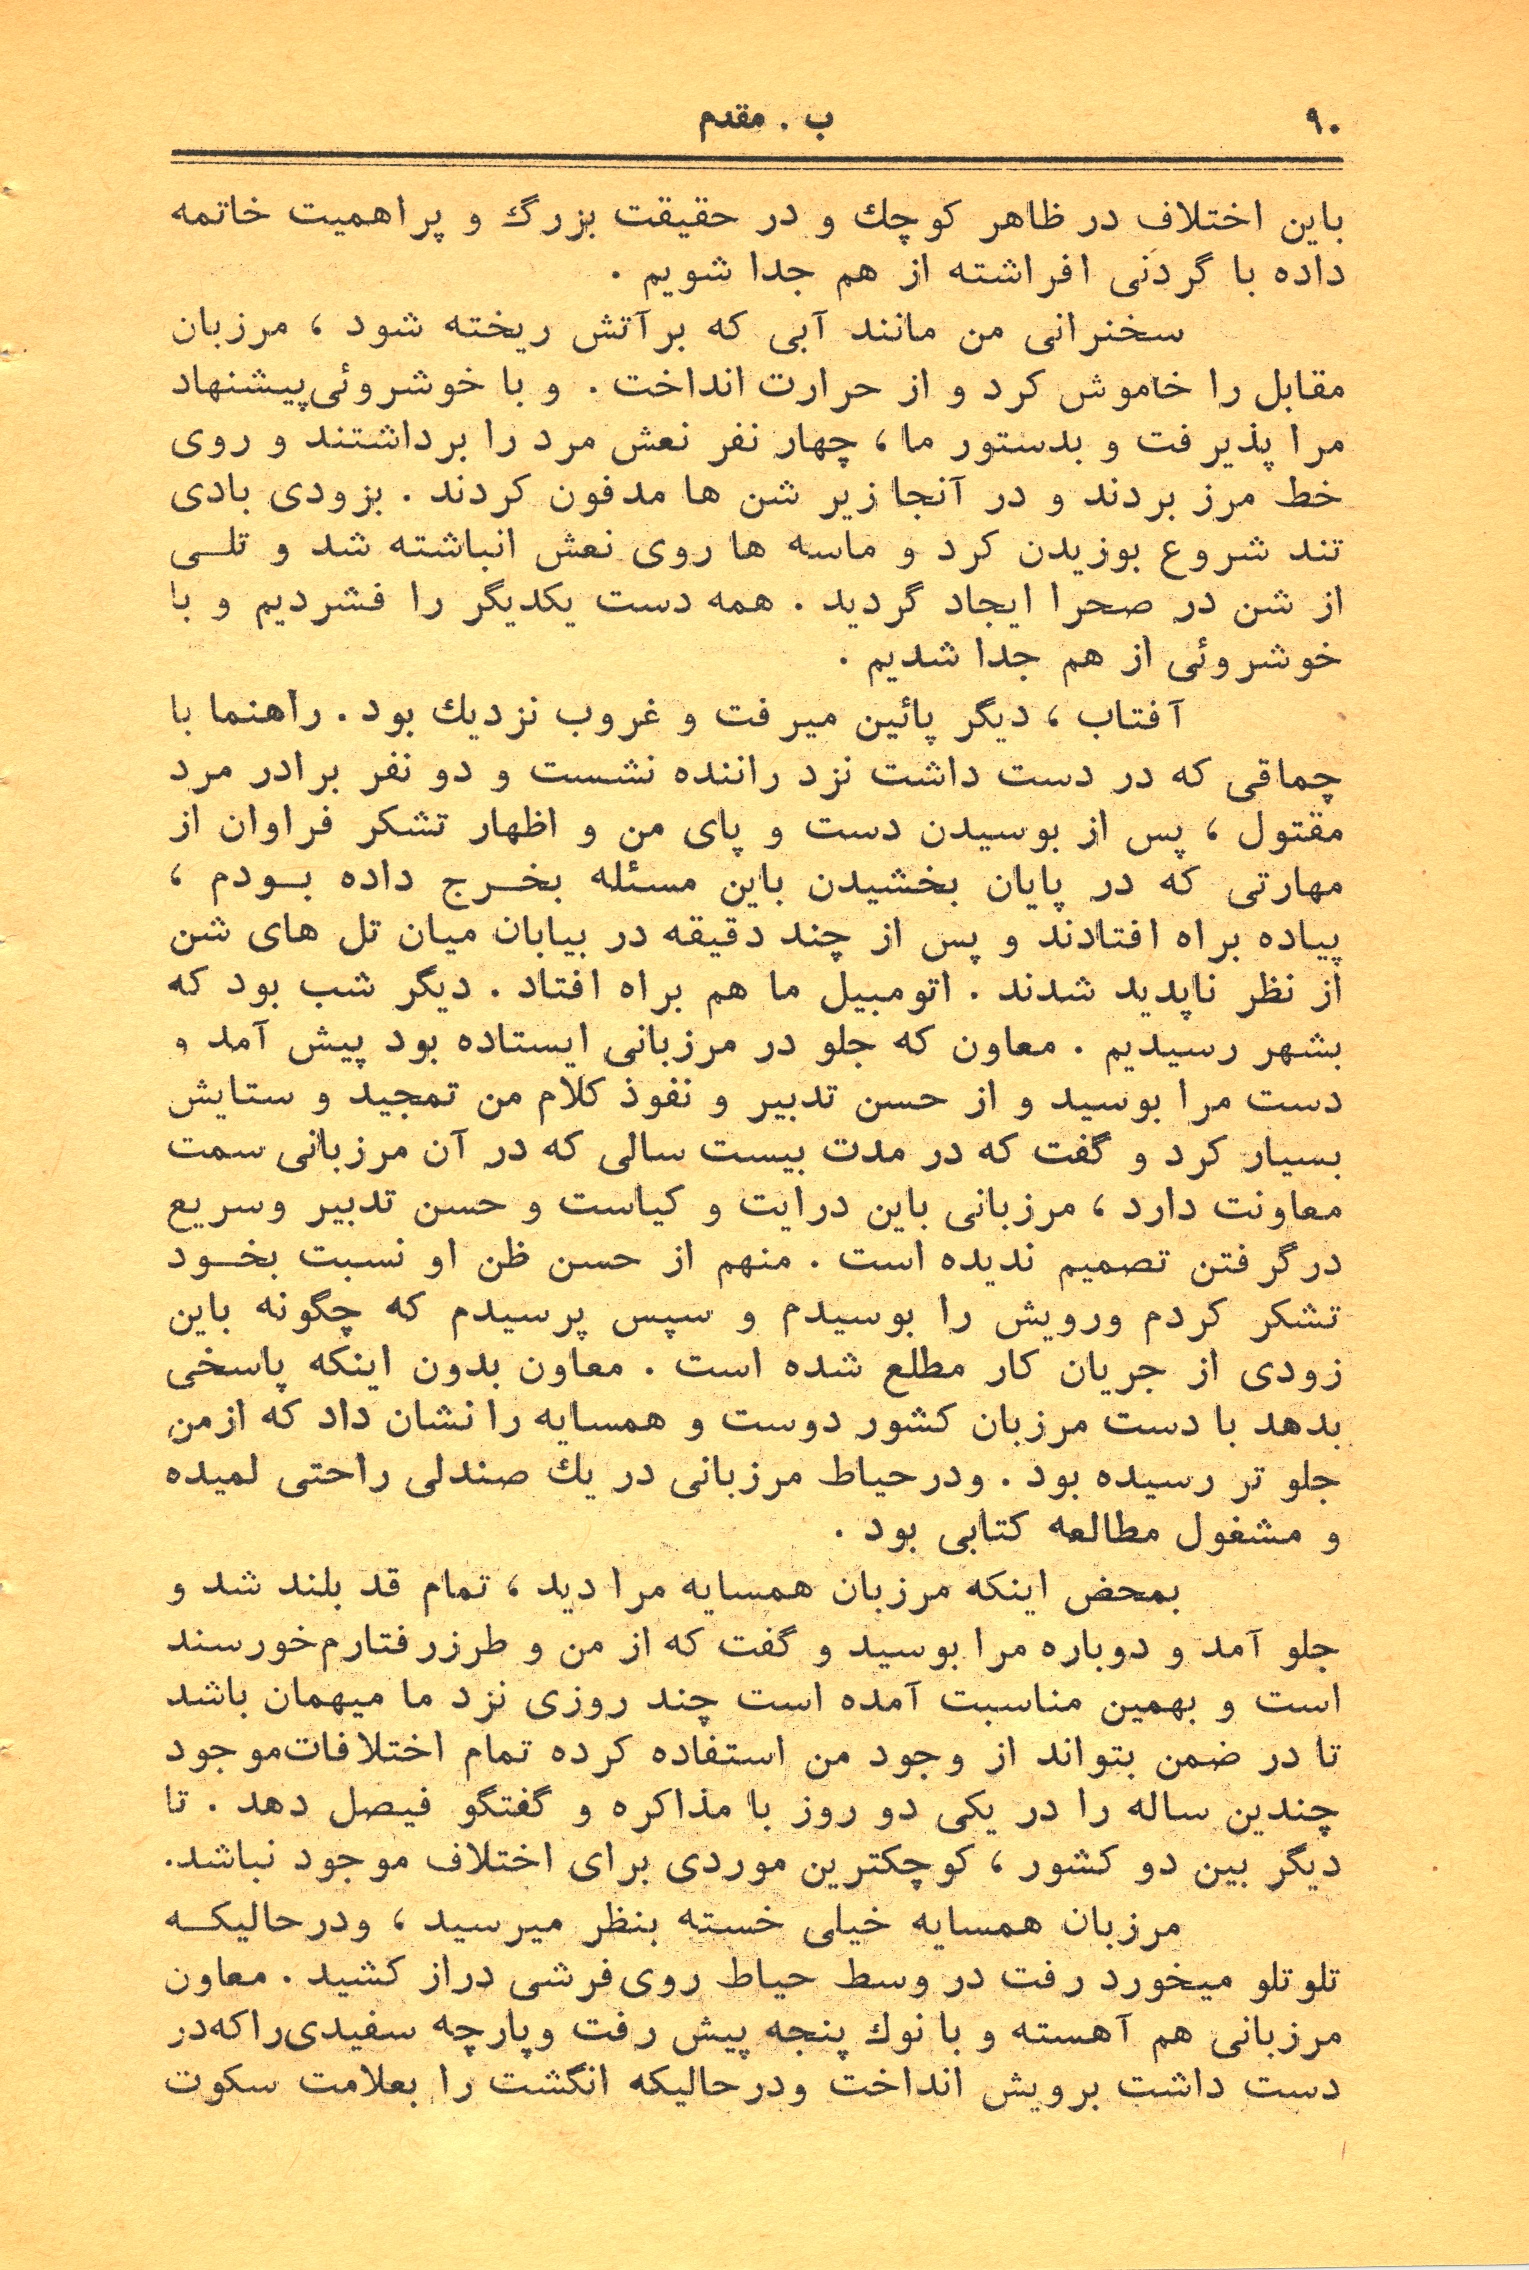 ۹۰
ب . مقدم
باین اختلاف در ظاهر کوچك و در حقیقت بزرگ و پراهمیت خاتمه
داده با گردنی افراشته از هم جدا شویم .
سخنرانی من مانند آبی که برآتش ریخته شود ، مرزبان
مقابل را خاموش کرد و از حرارت انداخت . و با خوشروئی پیشنهاد
مرا پذیرفت و بدستور ما ، چهار نفر نعش مرد را برداشتند و روی
خط مرز بردند و در آنجا زیر شن ها مدفون کردند . بزودی بادی
تند شروع بوزیدن کرد و ماسه ها روی نعش انباشته شد و تلـی
از شن در صحرا ایجاد گردید . همه دست یکدیگر را فشردیم و با
خوشروئی از هم جدا شدیم .
آفتاب ، دیگر پائین میرفت و غروب نزدیك بود . راهنما با
چماقی که در دست داشت نزد راننده نشست و دو نفر برادر مرد
مقتول ، پس از بوسیدن دست و پای من و اظهار تشکر فراوان از
مهارتی که در پایان بخشیدن باین مسئله بخـرج داده بـودم ،
پیاده براه افتادند و پس از چند دقیقه در بیابان میان تل های شن
از نظر ناپدید شدند . اتومبیل ما هم براه افتاد . دیگر شب بود که
بشهر رسیدیم . معاون که جلو در مرزبانی ایستاده بود پیش آمد و
دست مرا بوسید و از حسن تدبیر و نفوذ کلام من تمجید و ستایش
بسیار کرد و گفت که در مدت بیست سالی که در آن مرزبانی سمت
معاونت دارد ، مرزبانی باین درایت و کیاست و حسن تدبیر وسریع
درگرفتن تصمیم ندیده است . منهم از حسن ظن او نسبت بخـود
تشکر کردم ورویش را بوسیدم و سپس پرسیدم که چگونه باین
زودی از جریان کار مطلع شده است . معاون بدون اینکه پاسخی
بدهد با دست مرزبان کشور دوست و همسایه را نشان داد که ازمن
جلو تر رسیده بود . ودرحیاط مرزبانی در یك صندلی راحتی لمیده
و مشغول مطالعه کتابی بود .
بمحض اینکه مرزبان همسایه مرا دید ، تمام قد بلند شد و
جلو آمد و دوباره مرا بوسید و گفت که از من و طرز رفتارم خورسند
است و بهمین مناسبت آمده است چند روزی نزد ما میهمان باشد
تا در ضمن بتواند از وجود من استفاده کرده تمام اختلافات موجود
چندین ساله را در یکی دو روز با مذاکره و گفتگو فیصل دهد . تا
دیگر بین دو کشور ، کوچکترین موردی برای اختلاف موجود نباشد.
مرزبان همسایه خیلی خسته بنظر میرسید ، ودرحالیکـه
تلوتلو میخورد رفت در وسط حیاط روی فرشی دراز کشید . معاون
مرزبانی هم آهسته و با نوك پنجه پیش رفت وپارچه سفیدی راکه در
دست داشت برویش انداخت ودرحالیکه انگشت را بعلامت سکوت